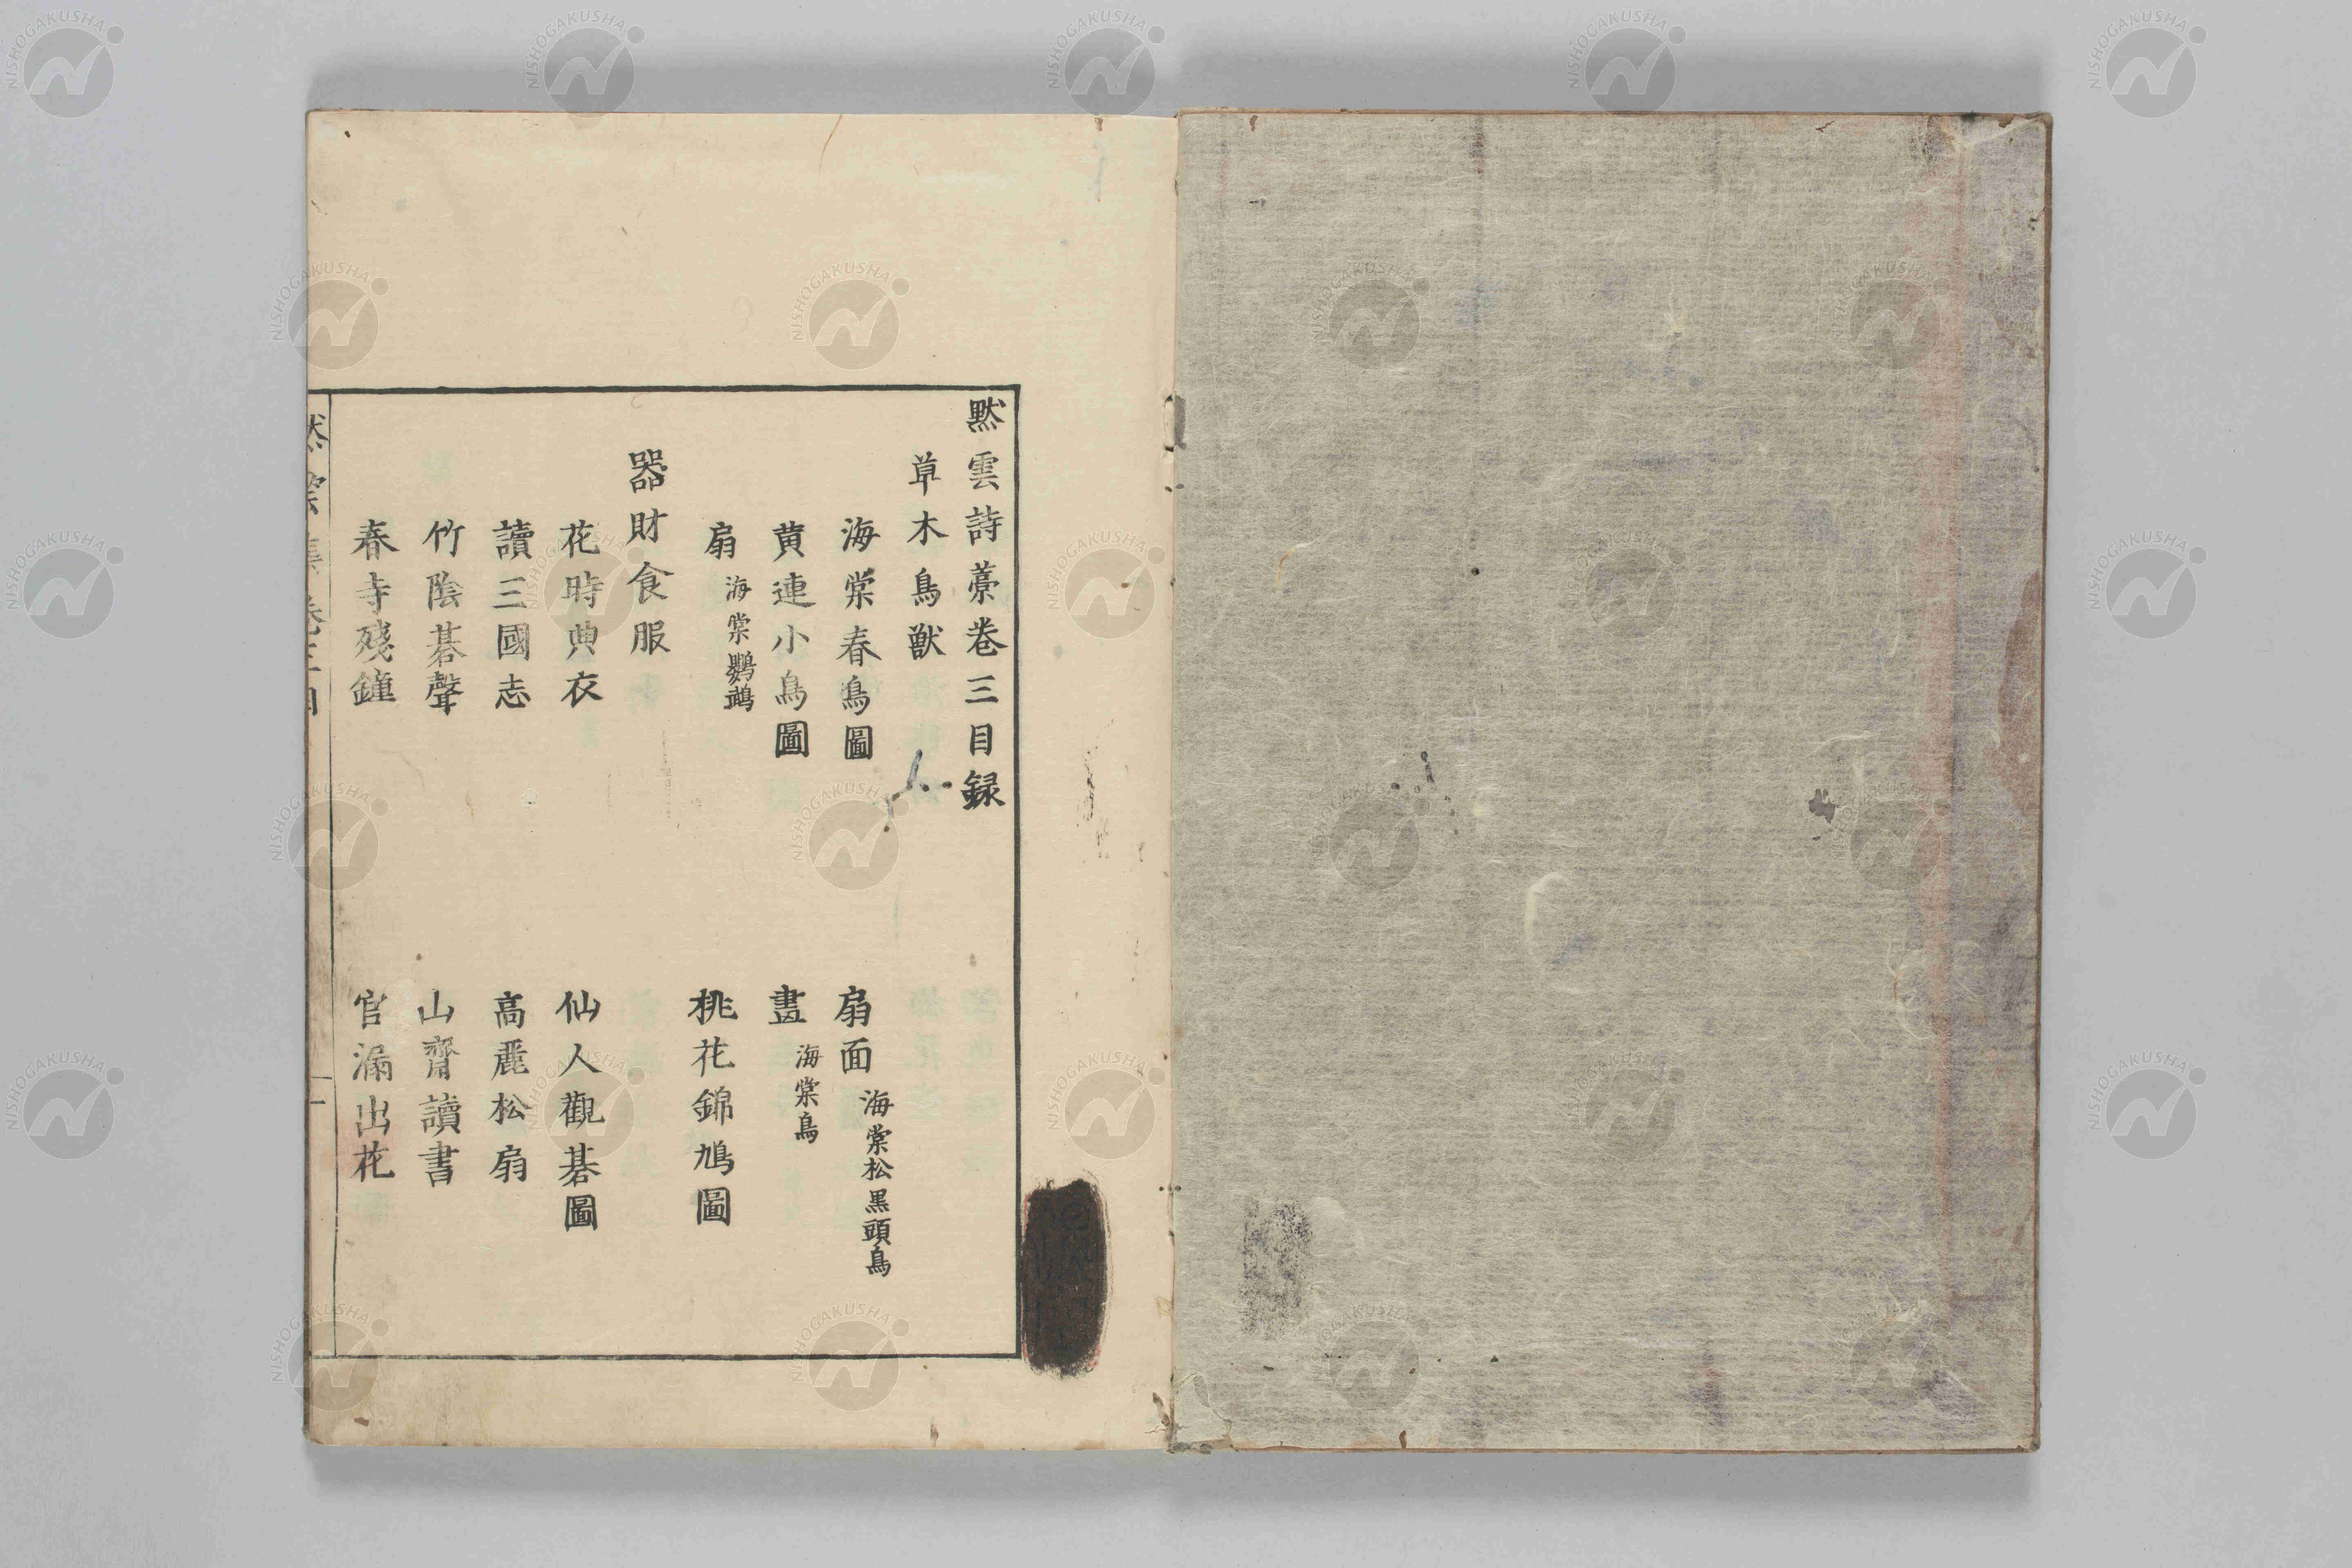 黙雲詩藁卷三目録
草木鳥獸
海棠春鳥圖
扇面 海棠松黒頭鳥
黄連小鳥圖
畫 海棠鳥
扇 海棠鸚鵡
桃花錦鳩圖
器財食服
花時典衣
仙人觀碁圖
讀三國志
高麗松扇
竹陰碁聲
山齋讀書
春寺殘鐘
官漏出花
NISHOGAKUSHA